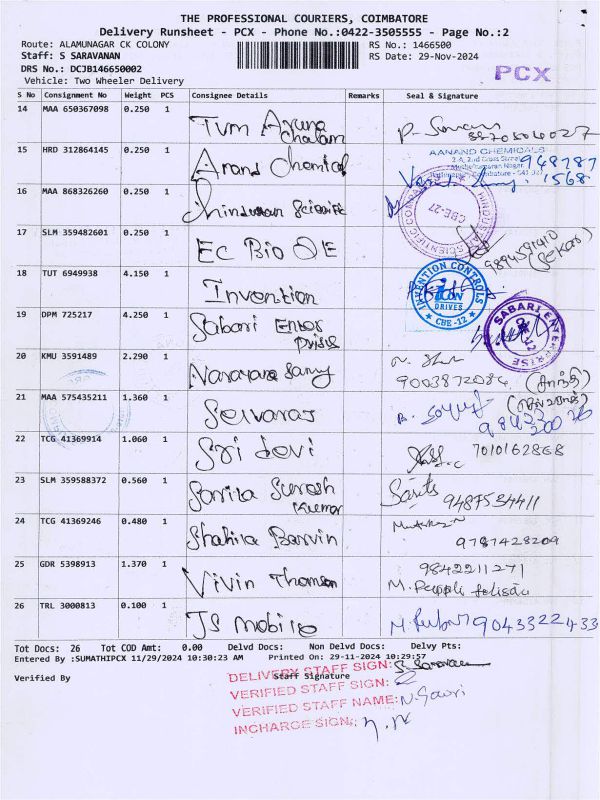 THE PROFESSIONAL COURIERS, COIMBATORE
Delivery Runsheet - PCX - Phone No.:0422-3505555 - Page No.:2
Route: ALAMUNAGAR CK COLONY
RS No.: 1466500
Staff: S SARAVANAN
RS Date: 29-Nov-2024
DRS No.: DCJB146650002
Vehicle: Two Wheeler Delivery
PCX
S No Consignment No Weight PCS Consignee Details Remarks Seal & Signature
14 MAA 650367098 0.250 1 Tvm Aruna chalam
15 HRD 312864145 0.250 1 Anand Chemical AANAND CHEMICALS
16 MAA 868326260 0.250 1 Hindustan Scientific CBE-27
17 SLM 359482601 0.250 1 EC Bio OE (Sekar)
18 TUT 6949938 4.150 1 Invention INVENTION CONTROLS DRIVES CBE-12
19 DPM 725217 4.250 1 Sabari Enter prises SABARI ENTERPRISE
20 KMU 3591489 2.290 1 Narayana Samy 9003872084 (சாந்தி)
21 MAA 575435211 1.360 1 Selvaraj
22 TCG 41369914 1.060 1 Sri devi 7010162868
23 SLM 359588372 0.560 1 Suresh Kumar 9487534411
24 TCG 41369246 0.480 1 Shahira Banvin 9787428209
25 GDR 5398913 1.370 1 Vivin Thomson 9842211271
26 TRL 3000813 0.100 1 JS mobile 9043322433
Tot Docs: 26 Tot COD Amt: 0.00 Delvd Docs: Non Delvd Docs: Delvy Pts:
Entered By :SUMATHIPCX 11/29/2024 10:30:23 AM Printed On: 29-11-2024 10:29:57
Verified By
Staff Signature
DELIVERY STAFF SIGN: S. Saravanan
VERIFIED STAFF SIGN:
VERIFIED STAFF NAME: N. Gowri
INCHARGE SIGN: